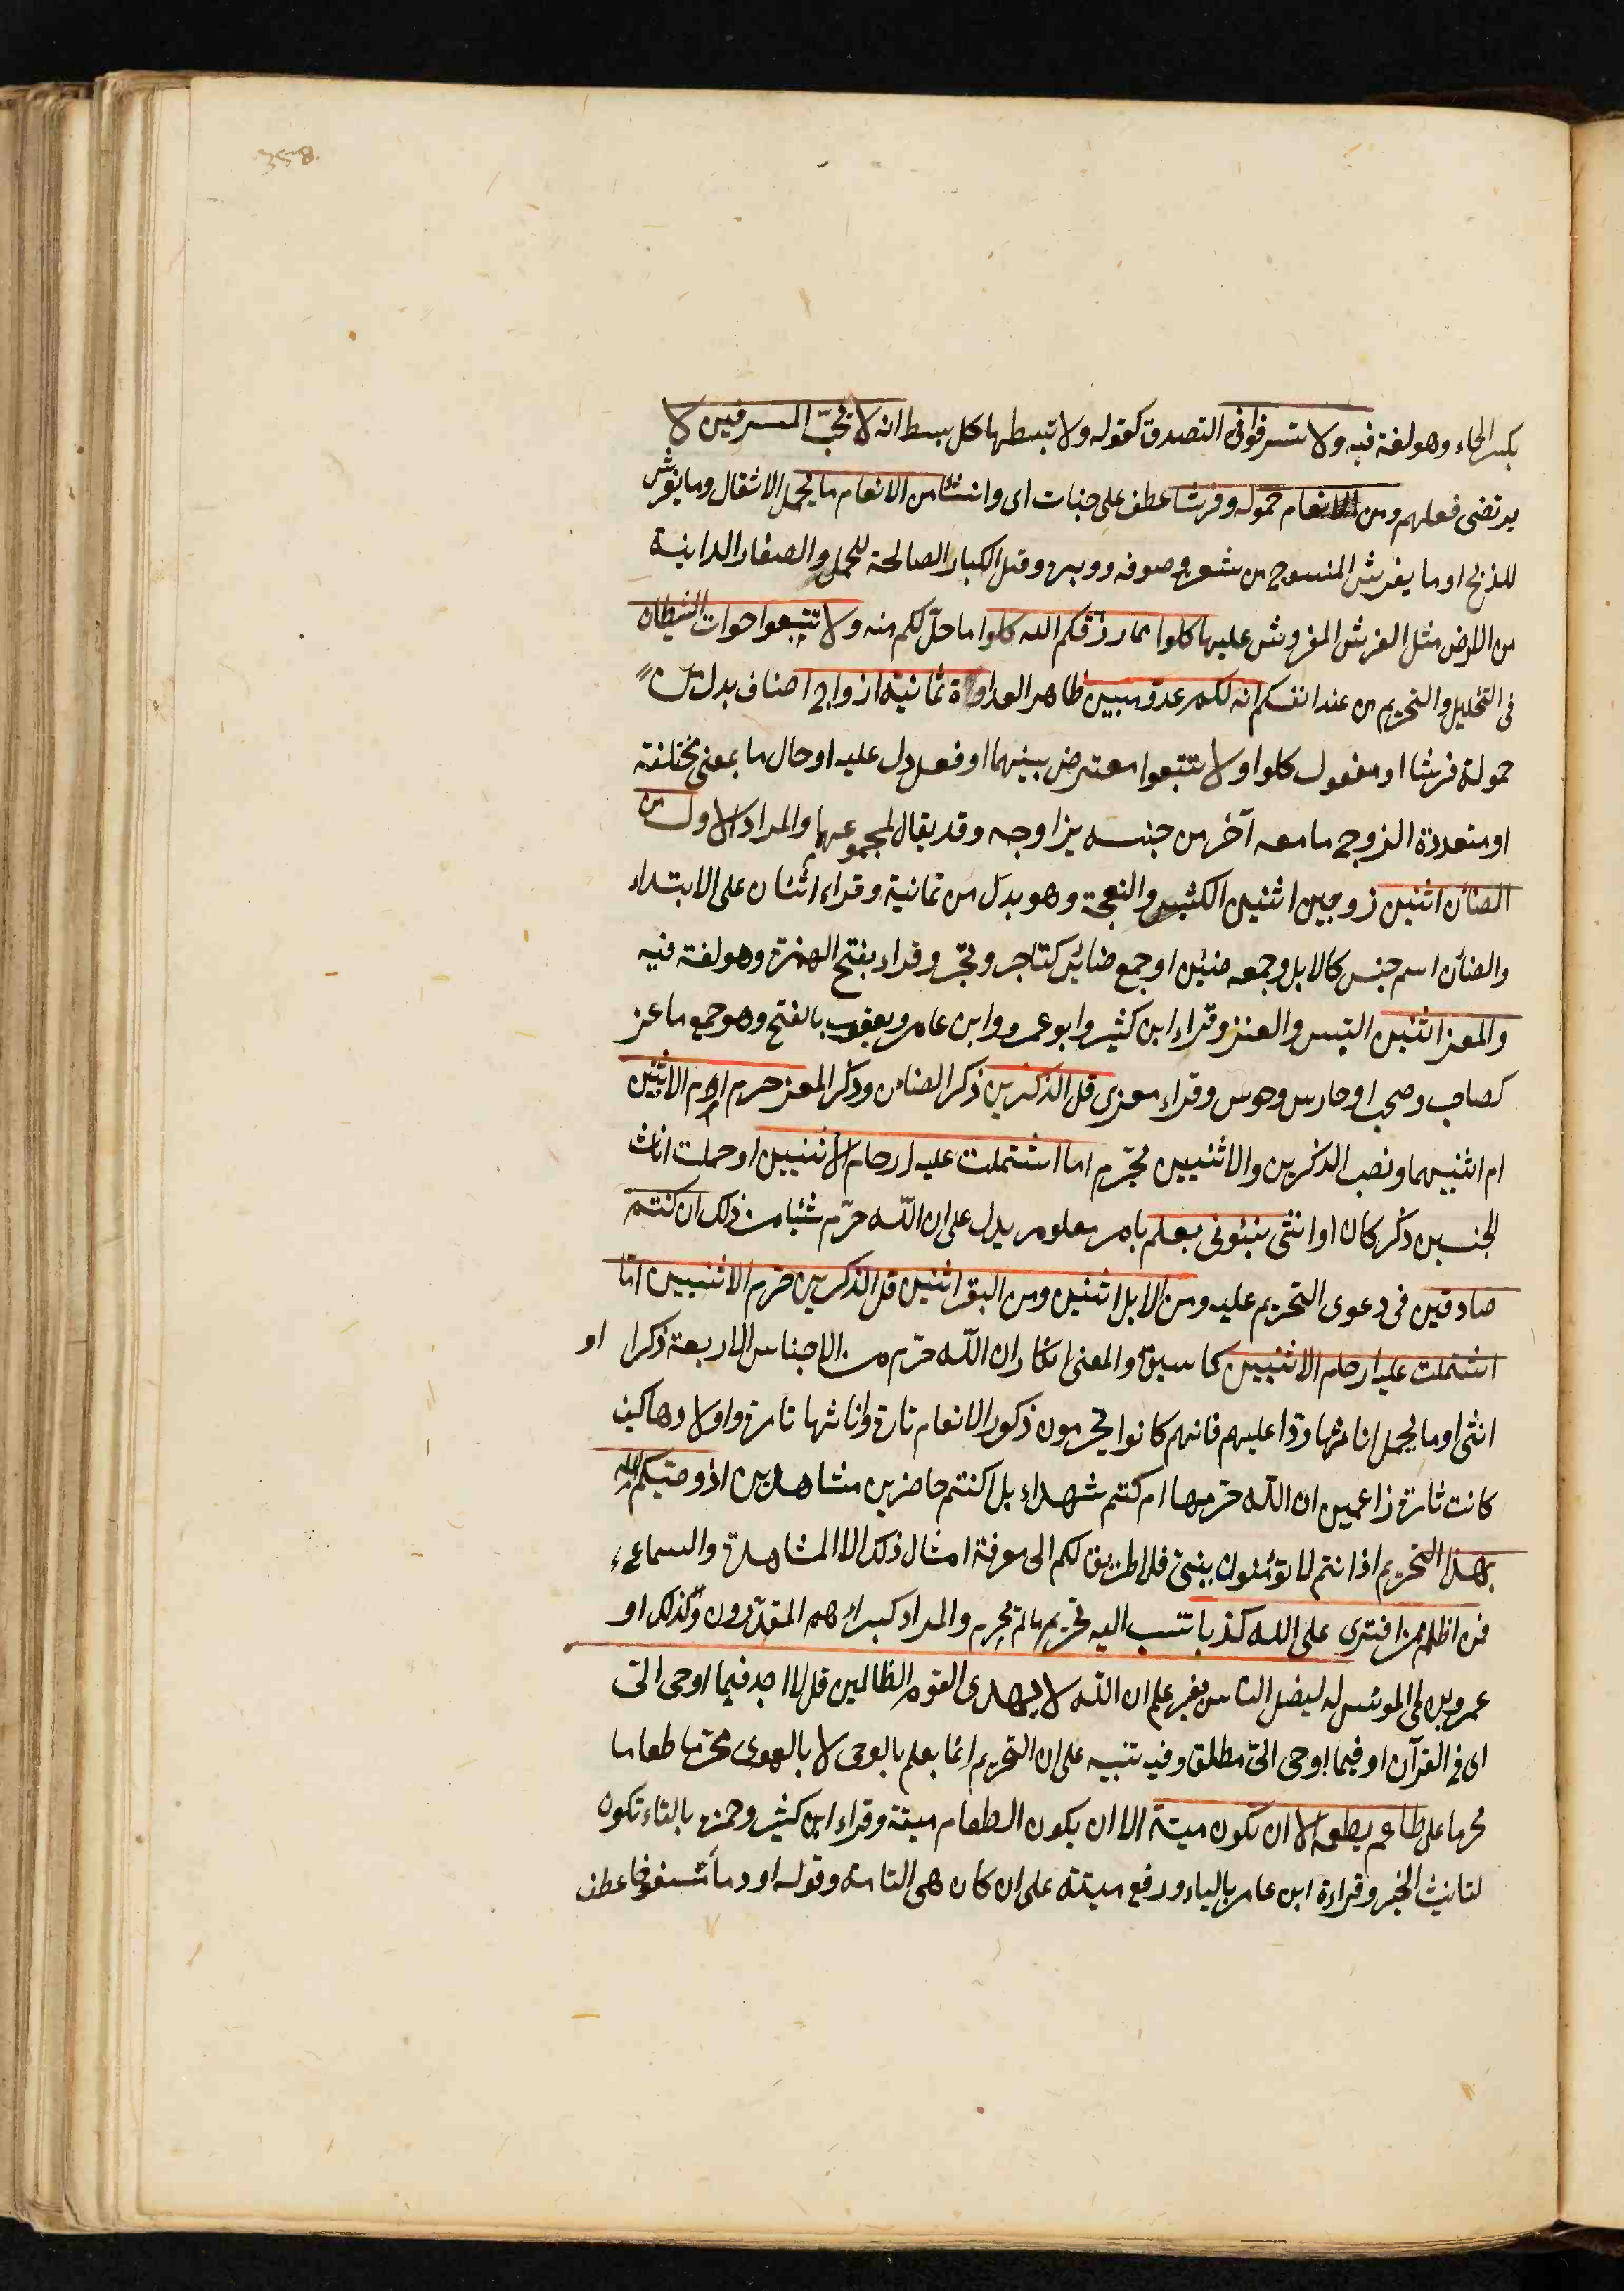 358.
بكسر الحاء وهو لغة فيه ولا تسرفوا فى التصدق كقوله ولا تبسطها كل بسط انه لا يحبّ المسرفين لا
يرتضى فعلهم ومن الانعام حمولة وفرشا عطف على جنات اى وانشأ من الانعام ما يحمل الاثقال وما يفرش
للذبح او ما يفرش المنسوج من شعره وصوفه ووبره وقيل الكبار الصالحة للحمل والصغار الدانية
من الارض مثل الفرش المفروش عليها كلوا مما رزقكم الله كلوا ما حلّ لكم منه ولا تتبعوا خوات الشيطان
فى التحليل والتحريم من عند انفسكم انه لكم عدو مبين ظاهر العداوة ثمانية ازواج اصناف بدل من
حمولة فرشا او مفعول كلوا ولا تتبعوا معترض بينهما او فعل دل عليه او حال ما بمعنى مختلفة
او متعددة الزوج ما معه آخر من جنسه يزاوجه وقد يقال لمجموعهما والمراد الاول من
الضأن اثنين زوجين اثنين الكبش والنعجة وهو بدل من ثمانية وقراء اثنان على الابتداء
والضأن اسم جنس كالابل وجمعه ضئين او جمع ضائن كتاجر وتجر وقراء بفتح الهمزة وهو لغة فيه
والمعز اثنين التيس والعنز وقراء ابن كثير وابو عمرو وابن عامر ويعقوب بالفتح وهو جمع ماعز
كصاحب وصحب او حارس وحرس وقراء معزى قل الذكرين ذكر الضأن وذكر المعز حرم ام الانثيين
ام انثييهما ونصب الذكرين والانثيين بحرّم اما اشتملت عليه ارحام الانثيين او حملت اناث
الجنسين ذكر كان او انثى نبئونى بعلم بامر معلوم يدل على ان الله حرّم شيئا من ذلك ان كنتم
صادقين فى دعوى التحريم عليه ومن الابل اثنين ومن البقر اثنين قل الذكرين حرم الانثيين امّا
اشتملت عليه ارحام الانثيين كما سبق والمعنى انكار ان الله حرّم من الاجناس الاربعة ذكرا او
انثى او ما يحمل اناثها ردّا عليهم فانهم كانوا يحرمون ذكور الانعام تارة واناثها تارة واولادها كيف
كانت تارة زاعمين ان الله حرّمها ام كنتم شهداء بل اكنتم حاضرين مشاهدين اذ وصيكم الله
بهذا التحريم اذ انتم لا تؤمنون بنبى فلا طريق لكم الى معرفة امثال ذلك الا المشاهدة والسماع
فمن اظلم ممن افترى على الله كذبا تنسب اليه تحريم ما لم يحرم والمراد كبراءهم المقدّرون كذلك او
عمرو بن لحى المؤسس له ليضل الناس بغير علم ان الله لا يهدى القوم الظالمين قل لا اجد فيما اوحى الىّ
اى فى القرآن او فيما اوحى الىّ مطلق وفيه تنبيه على ان التحريم انما يعلم بالوحى لا بالهوى محرما طعاما
محرما على طاعم يطعمه الا ان تكون ميتة الا ان يكون الطعام ميتة وقراء ابن كثير وحمزة بالتاء تكون
لتانيث الخبر وقراءة ابن عامر بالياء ورفع ميتة على ان كان هى التامة وقوله او دما مسفوحا عطف